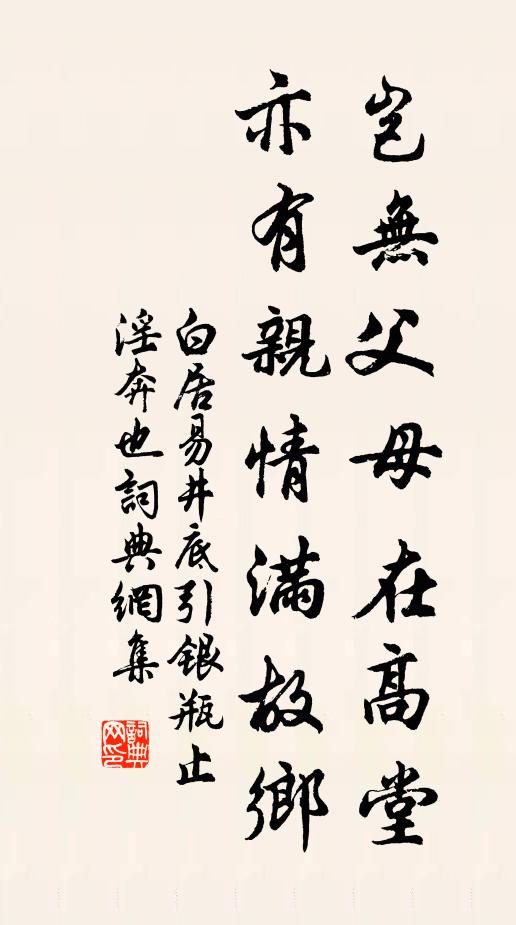 豈無父母在高堂
亦有親情滿故鄉
白居易井底引銀瓶止
淫奔也詞典網集
詞典
网印